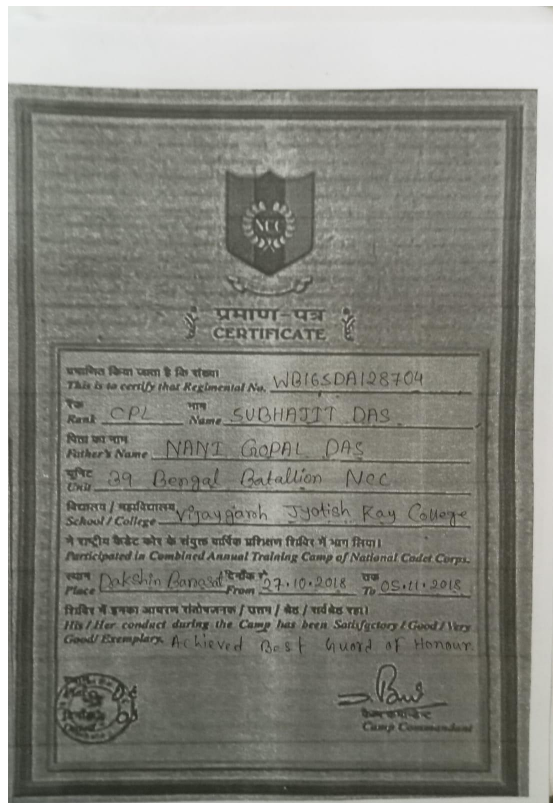 NCC
प्रमाण-पत्र
CERTIFICATE
प्रमाणित किया जाता है कि संख्या
This is to certify that Regimental No. WB16SDA128704
रैंक नाम
Rank CPL Name SUBHAJIT DAS
पिता का नाम
Father's Name NANI GOPAL DAS
यूनिट
Unit 39 Bengal Batallion NCC
विद्यालय / महाविद्यालय
School / College Vijaygarh Jyotish Ray College
ने राष्ट्रीय कैडेट कोर के संयुक्त वार्षिक प्रशिक्षण शिविर में भाग लिया।
Participated in Combined Annual Training Camp of National Cadet Corps.
स्थान दिनाँक से तक
Place Dakshin Barasat From 27.10.2018 To 05.11.2018
शिविर में इनका आचरण संतोषजनक / उत्तम / श्रेष्ठ / सर्वश्रेष्ठ रहा।
His / Her conduct during the Camp has been Satisfactory / Good / Very
Good / Exemplary. Achieved Best Guard of Honour
कैम्प कमान्डेन्ट
Camp Commandant